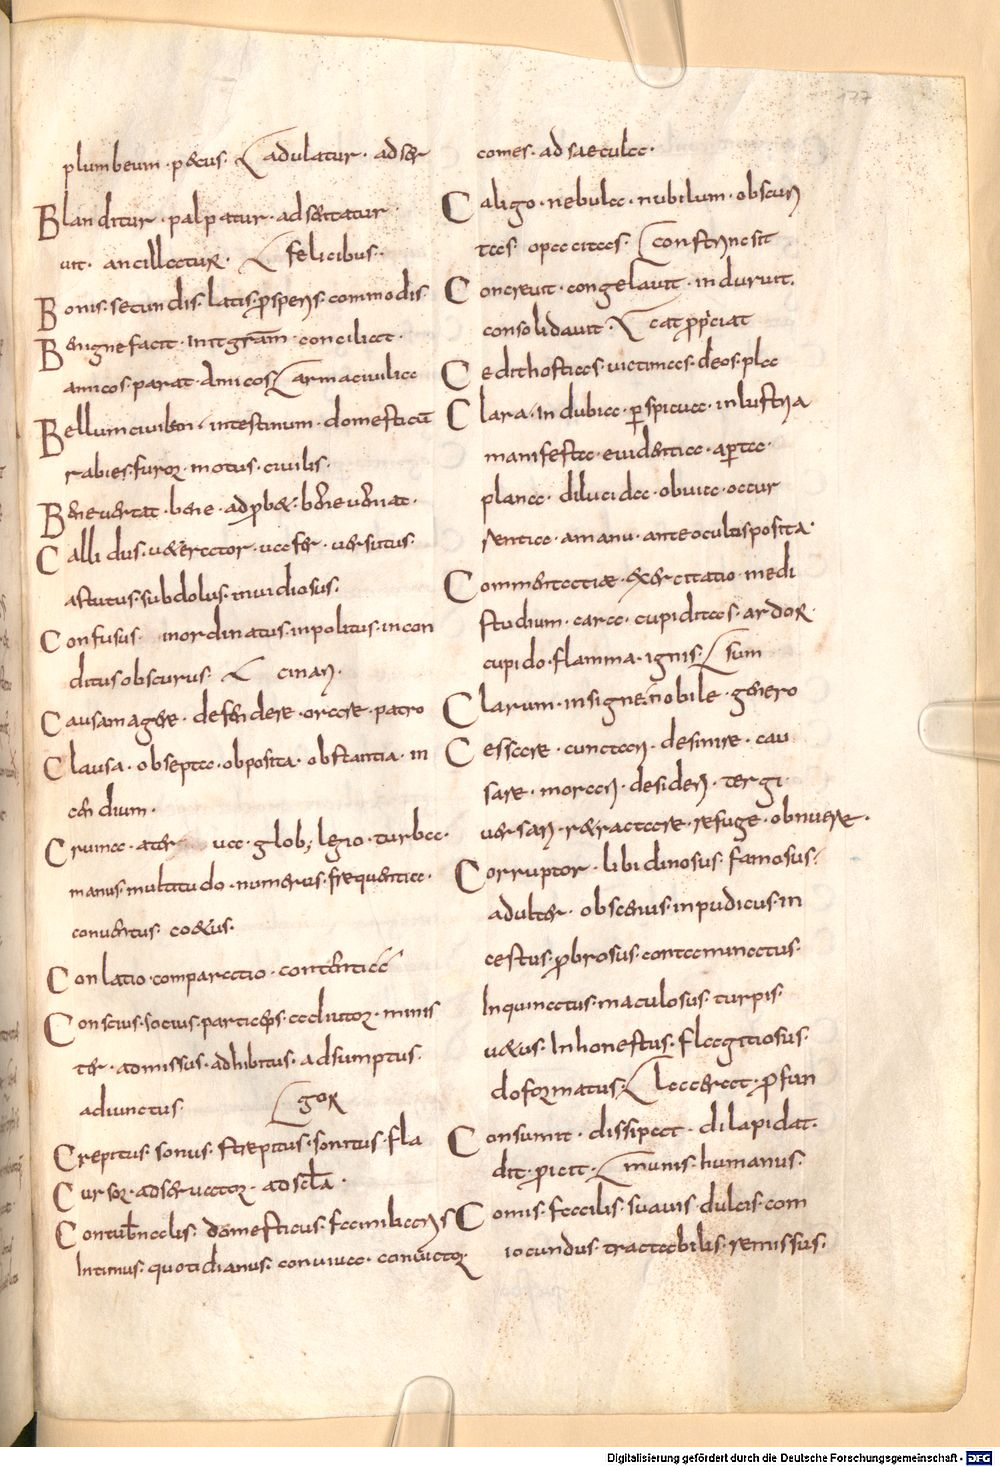 177
plumbeum · pecus · adulatur · adser
Blanditur · palpatur · adsentatur ·
uit · ancillatur · felicibus ·
Bonis · secundis · latis · prosperis · commodis ·
Benigne facit · in gram · conciliat ·
amicos · parat · amicos arma ciuilia
Bellum ciuilem · intestinum · domesticū
rabies · furor · motus · ciuilis ·
Bene uertat · bene · ad probet · bene ueniat ·
Callidus · ueterator · uafer · uersutus ·
astutus · subdolus · inuidiosus ·
Confusus · inordinatus · inpolitus · incon
ditus obscurus ·
Causam agere · defendere · orare · patro
Clausa · obsepta · obposita · obstantia · in
cendium ·
manus · multitudo · numerus · frequentia ·
conuentus · coetus ·
Conlatio · comparatio · contentia
Conscius · socius · particeps · adiutor · minis
ter · admissus · adhibitus · adsumptus ·
adiunctus · gor
Crepitus · sonus · strepitus · sonitus · fla
Cursor · adseruator ·
domesticus · familiaris
Intimus · quotidianus · conuiua · conuictor
comes · ad saecula ·
Caligo · nebula · nubilum · obscuri
tas · opacitas · constrinxit
Concreuit · congelauit · induruit ·
consolidauit ·
Cedit hostias · uictimas · deos · pla
Clara · indubia · perspicua · inlustria
manifesta · euidentia · aperta ·
plana · dilucida · obuia · occur
sentia · a manu · ante oculus posita ·
exercitatio · medi
studium · cara · cupiditas · ardor ·
cupido · flamma · ignis · sum
Clarum · insigne · nobile · genero
Cessare · cunctari · desinere · cau
sare · morari · desideri · tergi
uersari · retractare · refuge · obnuere ·
Corruptor · libidinosus · famosus ·
adulter · obscenus · inpudicus · in
cestus · probrosus · contaminatus ·
Inquinatus · maculosus · turpis ·
Inhonestus · flagitiosus ·
deformatus · lacerat · profun
Consumit · dissipat · dilapidat ·
dit · proicit · munis · humanus ·
Comis · facilis · suauis · dulcis · com
iocundus · tractabilis · remissus ·
Digitalisierung gefördert durch die Deutsche Forschungsgemeinschaft - DFG